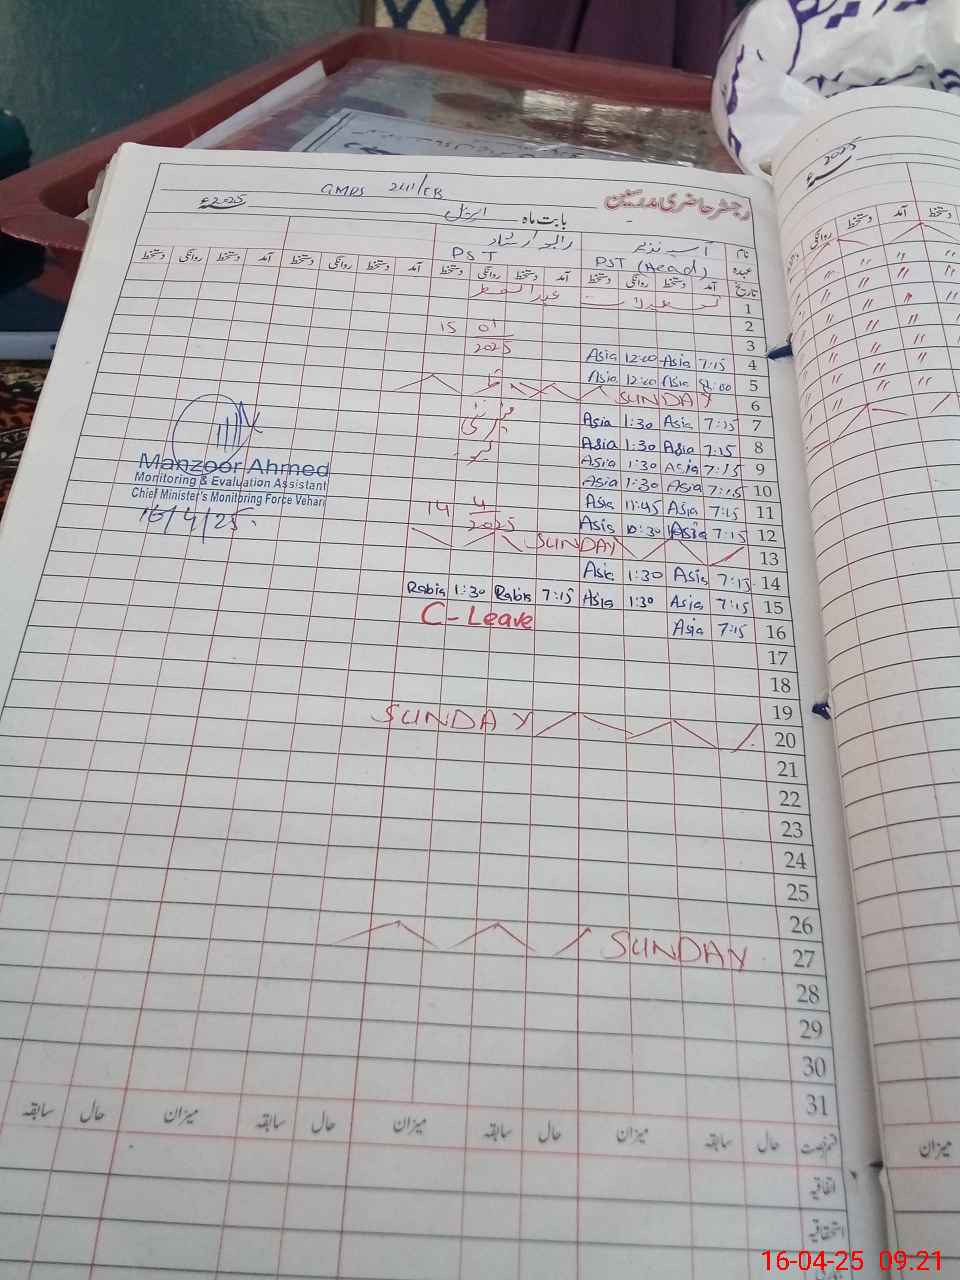 رجسٹر حاضری مدرسین
GMPS 241/EB
بابت ماہ اپریل 2025ء
نام آسیہ نذیر رابعہ ارشاد
عہدہ PST (Head) PST
تاریخ آمد دستخط روانگی دستخط آمد دستخط روانگی دستخط آمد دستخط روانگی دستخط آمد دستخط روانگی دستخط
1 تعطیلات عید الفطر
2
3 15 01 2025
4 7:15 Asia 12:00 Asia
5 Asia 12:00 Asia
6 SUNDAY
7 7:15 Asia 1:30 Asia
8 7:15 Asia 1:30 Asia
9 7:15 Asia 1:30 Asia
10 7:15 Asia 1:30 Asia
11 7:15 Asia 11:45 Asia
12 7:15 Asia 10:30 Asia 14 4 2025
13 SUNDAY
14 7:15 Asia 1:30 Asia
15 7:15 Asia 1:30 Asia 7:15 Rabia 1:30 Rabia
16 7:15 Asia C-Leave
17
18
19
20 SUNDAY
21
22
23
24
25
26
27 SUNDAY
28
29
30
31
Manzoor Ahmed
Monitoring & Evaluation Assistant
Chief Minister's Monitoring Force Vehari
16/4/25
قسم رخصت حال سابقہ میزان حال سابقہ میزان حال سابقہ میزان حال سابقہ
اتفاقیہ
استحقاقیہ
2025ء
دستخط آمد دستخط روانگی
میزان
16-04-25 09:21